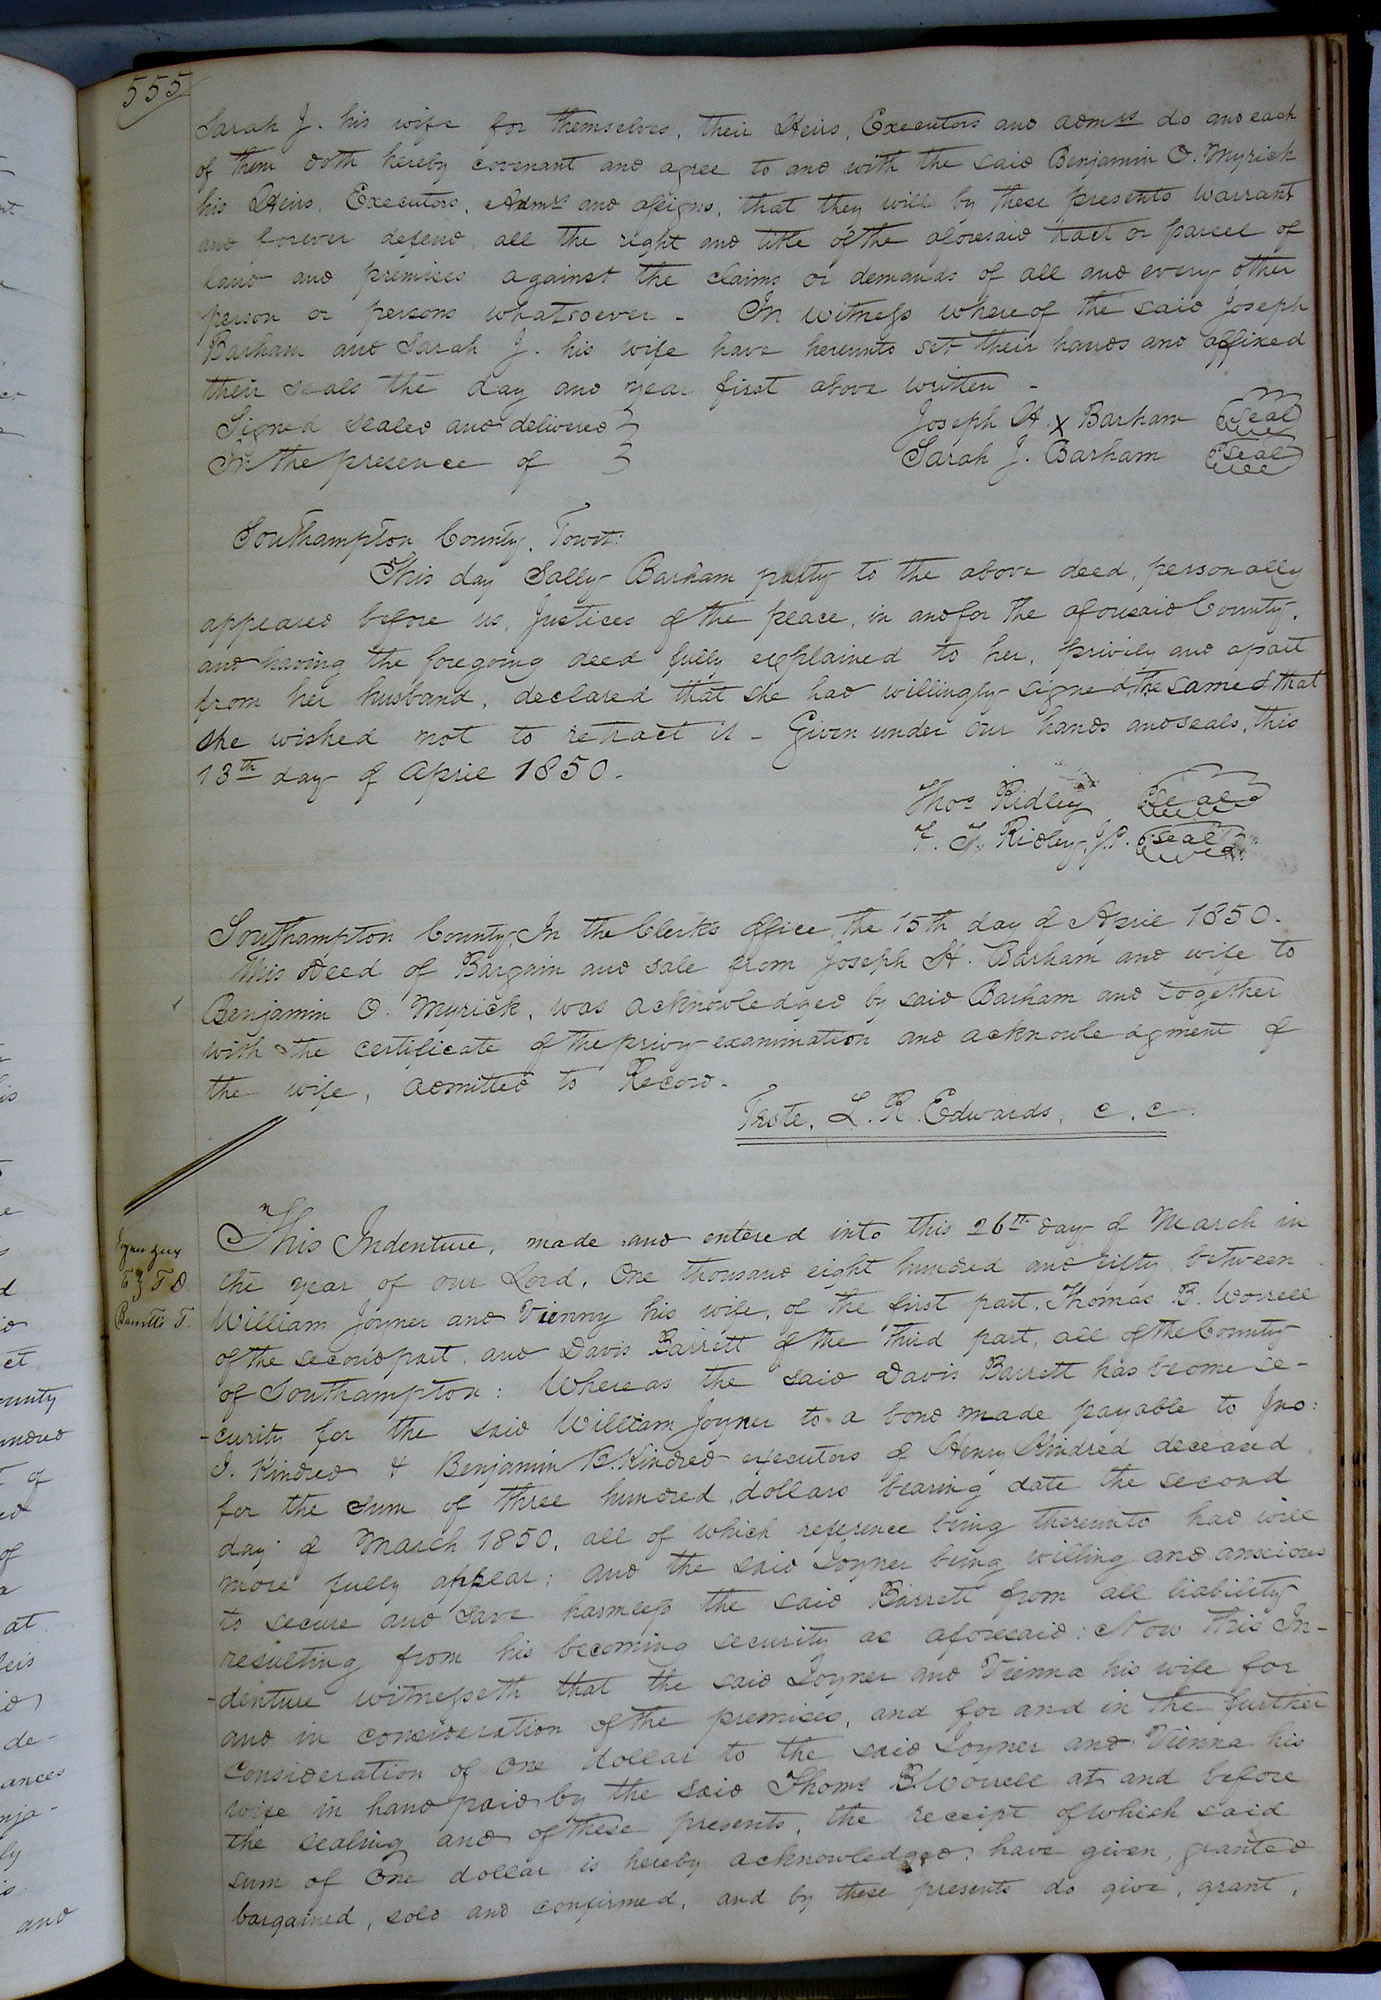 555
Sarah J. his wife for themselves, their Heirs, Executors and admrs do and each
of them doth hereby covenant and agree to and with the said Benjamin O. Myrick
his Heirs, Executors, Admrs and assigns, that they will by these presents warrant
and forever defend, all the right and title of the aforesaid tract or parcel of
land and premises against the claims or demands of all and every other
person or persons whatsoever - In witness whereof the said Joseph
Barham and Sarah J. his wife have hereunto set their hands and affixed
their seals the day and year first above written -
Signed sealed and delivered } Joseph H. x Barham seal
In the presence of } Sarah J. Barham seal
Southampton County, Towit:
This day Sally Barham party to the above deed, personally
appeared before us, Justices of the peace, in and for the aforesaid County,
and having the foregoing deed fully explained to her, privily and apart
from her husband, declared that she had willingly signed the same & that
she wished not to retract it - Given under our hands and seals, this
13th day of April 1850.
Thos Ridley seal
F. T. Ridley, J.P. seal
Southampton County, In the Clerk's office, the 15th day of April 1850.
This Deed of Bargain and sale from Joseph H. Barham and wife to
Benjamin O. Myrick, was acknowledged by said Barham and together
with the certificate of the privy examination and acknowledgment of
the wife, admitted to Record.
Teste, L. R. Edwards, c. c.
This Indenture, made and entered into this 26th day of March in
the year of our Lord, One thousand eight hundred and fifty, between
Joyner & ux
To } T D.
Barrett's T.
William Joyner and Vienny his wife, of the first part, Thomas B. Worrell
of the second part, and Davis Barrett of the third part, all of the County
of Southampton: Whereas the said Davis Barrett has become se-
-curity for the said William Joyner to a bond made payable to Jno:
J. Kindred & Benjamin B. Kindred executors of Henry Kindred deceased,
for the sum of three hundred dollars bearing date the second
day of March 1850, all of which reference being thereunto had will
more fully appear; and the said Joyner being willing and anxious
to secure and save harmless the said Barrett from all liability
resulting from his becoming security as aforesaid: Now this In-
-denture witnesseth that the said Joyner and Vienna his wife for
and in consideration of the premises, and for and in the further
consideration of one dollar to the said Joyner and Vienna his
wife in hand paid by the said Thoms B Worrell at and before
the sealing and of these presents, the receipt of which said
sum of one dollar is hereby acknowledged, have given, granted
bargained, sold and confirmed, and by these presents do give, grant,